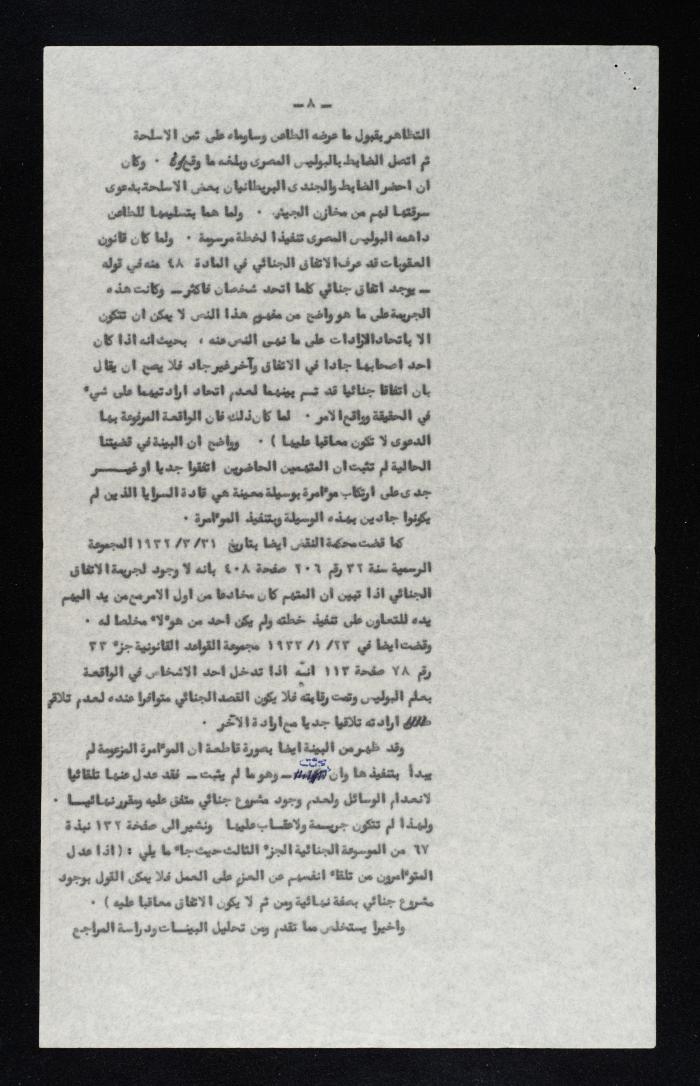 ـ ٨ ـ
التظاهر بقبول ما عرضه الطاعن وساومه على ثمن الاسلحة
ثم اتصل الضابط بالبوليس المصرى وبلغه ما وقع . وكان
ان احضر الضابط والجندى البريطانيان بعض الاسلحة بدعوى
سرقتها لهم من مخازن الجيش . ولما هما بتسليمها للطاعن
داهمه البوليس المصرى تنفيذا لخطة مرسومة . ولما كان قانون
العقوبات قد عرف الاتفاق الجنائي في المادة ٤٨ منه في قوله
ـ يوجد اتفاق جنائي كلما اتحد شخصان فاكثر ـ وكانت هذه
الجريمة على ما هو واضح من مفهوم هذا النص لا يمكن ان تتكون
الا باتحاد الارادات على ما نهى النص عنه ، بحيث انه اذا كان
احد اصحابها جادا في الاتفاق وآخر غير جاد فلا يصح ان يقال
بان اتفاقا جنائيا قد تـم بينهما لعدم اتحاد ارادتيهما على شيء
في الحقيقة وواقع الامر . لما كان ذلك فان الواقعة المرفوعة بها
الدعوى لا تكون معاقبا عليها ) . وواضح ان البينة في قضيتنا
الحالية لم تثبت ان المتهمين الحاضرين اتفقوا جديا او غيـــر
جدى على ارتكاب موءامرة بوسيلة معينة هي قادة السرايا الذين لم
يكونوا جادين بهذه الوسيلة وبتنفيذ الموءامرة .
كما قضت محكمة النقض ايضا بتاريخ ٣١/ ٣/ ١٩٣٢ المجموعة
الرسمية سنة ٣٢ رقم ٢٠٦ صفحة ٤٠٨ بانه لا وجود لجريمة الاتفاق
الجنائي اذا تبين ان المتهم كان مخادعا من اول الامر مع من يد اليهم
يده للتعاون على تنفيذ خطته ولم يكن احد من هوءلاء مخلصا له .
وقضت ايضا في ٢٣/ ١/ ١٩٣٣ مجموعة القواعد القانونية جزء ٣٣
رقم ٧٨ صفحة ١١٣ انـه اذا تدخل احد الاشخاص في الواقعة
بعلم البوليس وتحت رقابته فلا يكون القصد الجنائي متوافرا عنده لعدم تلاقي
ارادته تلاقيا جديا مع ارادة الآخر .
وقد ظهر من البينة ايضا بصورة قاطعة ان الموءامرة المزعومة لم
يبدأ بتنفيذها وان ـ وهو ما لم يثبت ـ فقد عدل عنها تلقائيا
لانعدام الوسائل ولعدم وجود مشروع جنائي متفق عليه ومقرر نهائيـا .
ولهذا لم تتكون جريـمة ولا عقـاب عليها ونشير الى صفحة ١٣٢ نبذة
٦٧ من الموسوعة الجنائية الجزء الثالث حيث جاء ما يلي : ( اذا عدل
المتوءامرون من تلقاء انفسهم عن العزم على العمل فلا يمكن القول بوجود
مشروع جنائي بصفة نهائية ومن ثم لا يكون الاتفاق معاقبا عليه ) .
واخيرا يستخلص مما تقدم ومن تحليل البينـات ودراسة المراجع